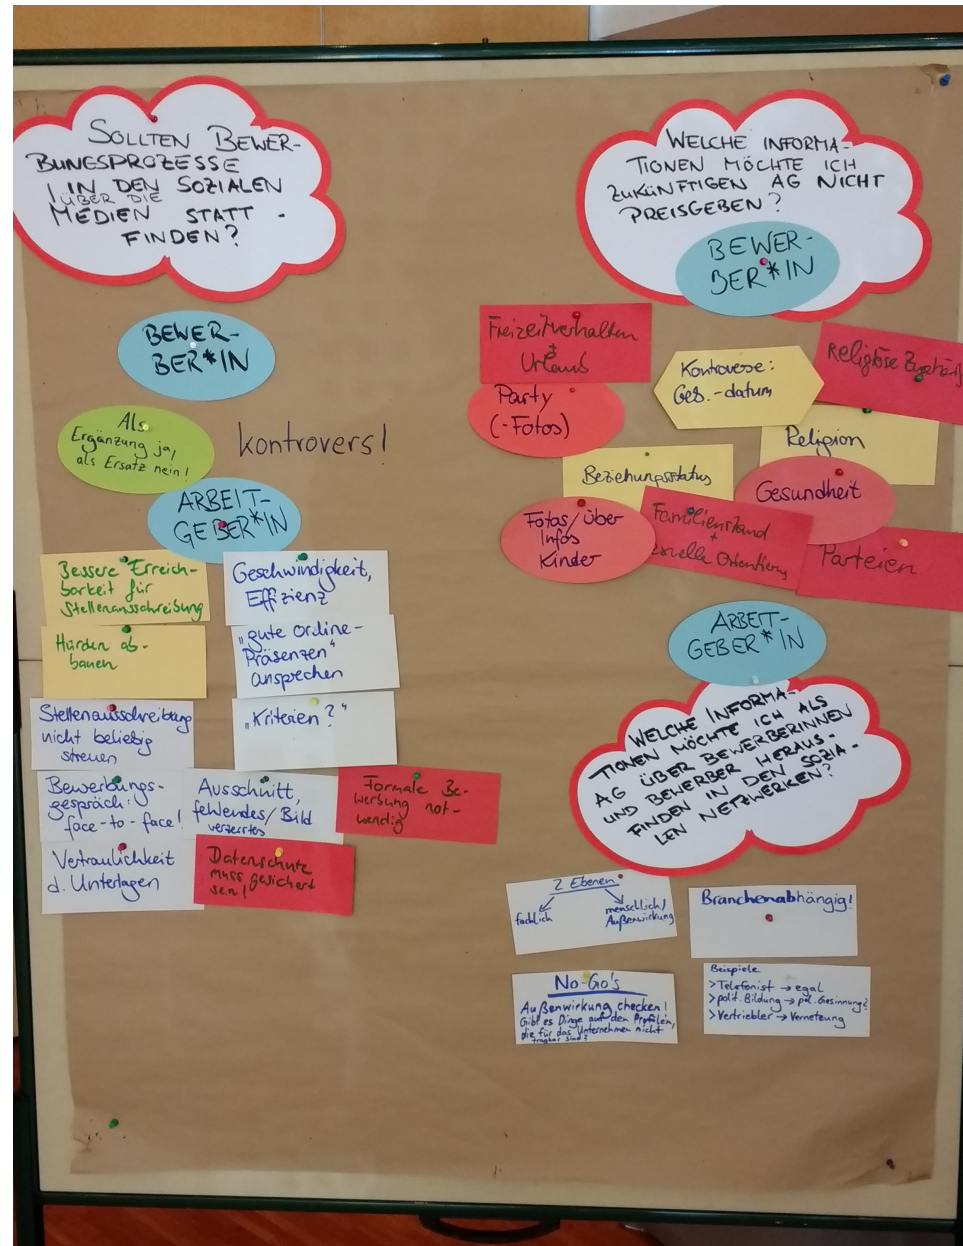 SOLLTEN BEWER-
BUNGSPROZESSE
IN DEN SOZIALEN
ÜBER DIE
MEDIEN STATT-
FINDEN?
BEWER-
BER*IN
Als
Ergänzung ja,
als Ersatz nein!
kontrovers!
ARBEIT-
GEBER*IN
Bessere Erreich-
barkeit für
Stellenausschreibung
Hürden ab-
bauen
Stellenausschreibung
nicht beliebig
streuen
Bewerbungs-
gespräch:
face-to-face!
Vertraulichkeit
d. Unterlagen
Geschwindigkeit,
Effizienz
"gute Online-
Präsenzen"
ansprechen
"Kriterien?"
Ausschnitt,
fehlendes/Bild
verzerrtes
Formale Be-
werbung not-
wendig
Datenschutz
muss gesichert
sein!
WELCHE INFORMA-
TIONEN MÖCHTE ICH
ZUKÜNFTIGEN AG NICHT
PREISGEBEN?
BEWER-
BER*IN
Freizeitverhalten
+
Urlaub
Party
(-Fotos)
Kontroverse:
Geb.-datum
Religiöse
Religion
Beziehungsstatus
Gesundheit
Fotos/über
Infos
Kinder
Familienstand
+
Orientierung
Parteien
ARBEIT-
GEBER*IN
WELCHE INFORMA-
TIONEN MÖCHTE ICH ALS
AG ÜBER BEWERBERINNEN
UND BEWERBER HERAUS-
FINDEN IN DEN SOZIA-
LEN NETZWERKEN?
2 Ebenen
fachlich
menschlich/
Außenwirkung
Branchenabhängig!
No-Go's
Außenwirkung checken!
Gibt es Dinge auf den Profilen,
die für das Unternehmen nicht
tragbar sind?
Beispiele
>Telefonist → egal
>polit. Bildung → pol. Gesinnung?
>Vertriebler → Vernetzung